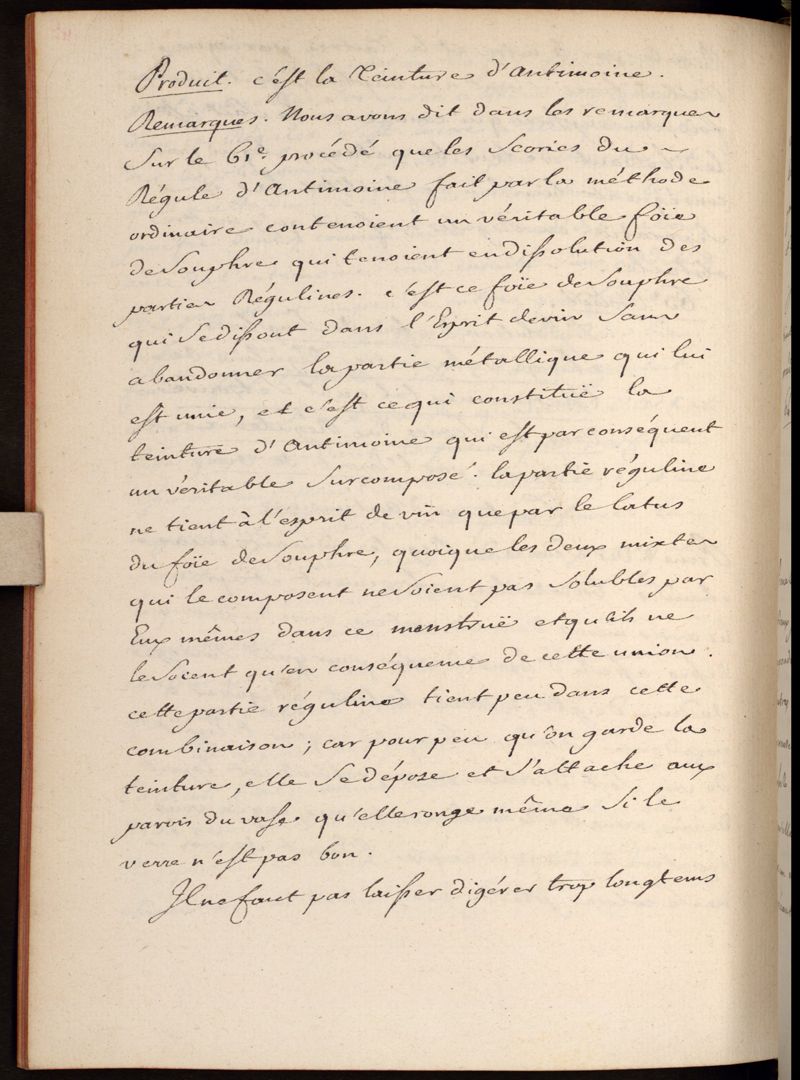 Produit. c'est la Teinture d'antimoine.
Remarques. Nous avons dit dans les remarques
sur le 61e. procédé que les Scories du
Régule d'Antimoine fait par la méthode
ordinaire contenoient un véritable foïe
de Souphre qui tenoient en dissolution des
parties Régulines. c'est ce foïe de Souphre
qui se dissout dans l'Esprit de vin sans
abandonner la partie métallique qui lui
est unie, et c'est ce qui constituë la
teinture d'Antimoine qui est par conséquent
un véritable Surcomposé. la partie réguline
ne tient à l'esprit de vin que par le latus
du foïe de Souphre, quoique les deux mixtes
qui le composent ne soient pas solubles par
Eux mêmes dans ce menstruë et qu'ils ne
le soient qu'en conséquence de cette union.
cette partie réguline tient peu dans cette
combinaison; car pour peu qu'on garde la
teinture, elle se dépose et s'attache aux
parois du vase qu'elle ronge même si le
verre n'est pas bon.
Il ne faut pas laisser digérer trop longtems